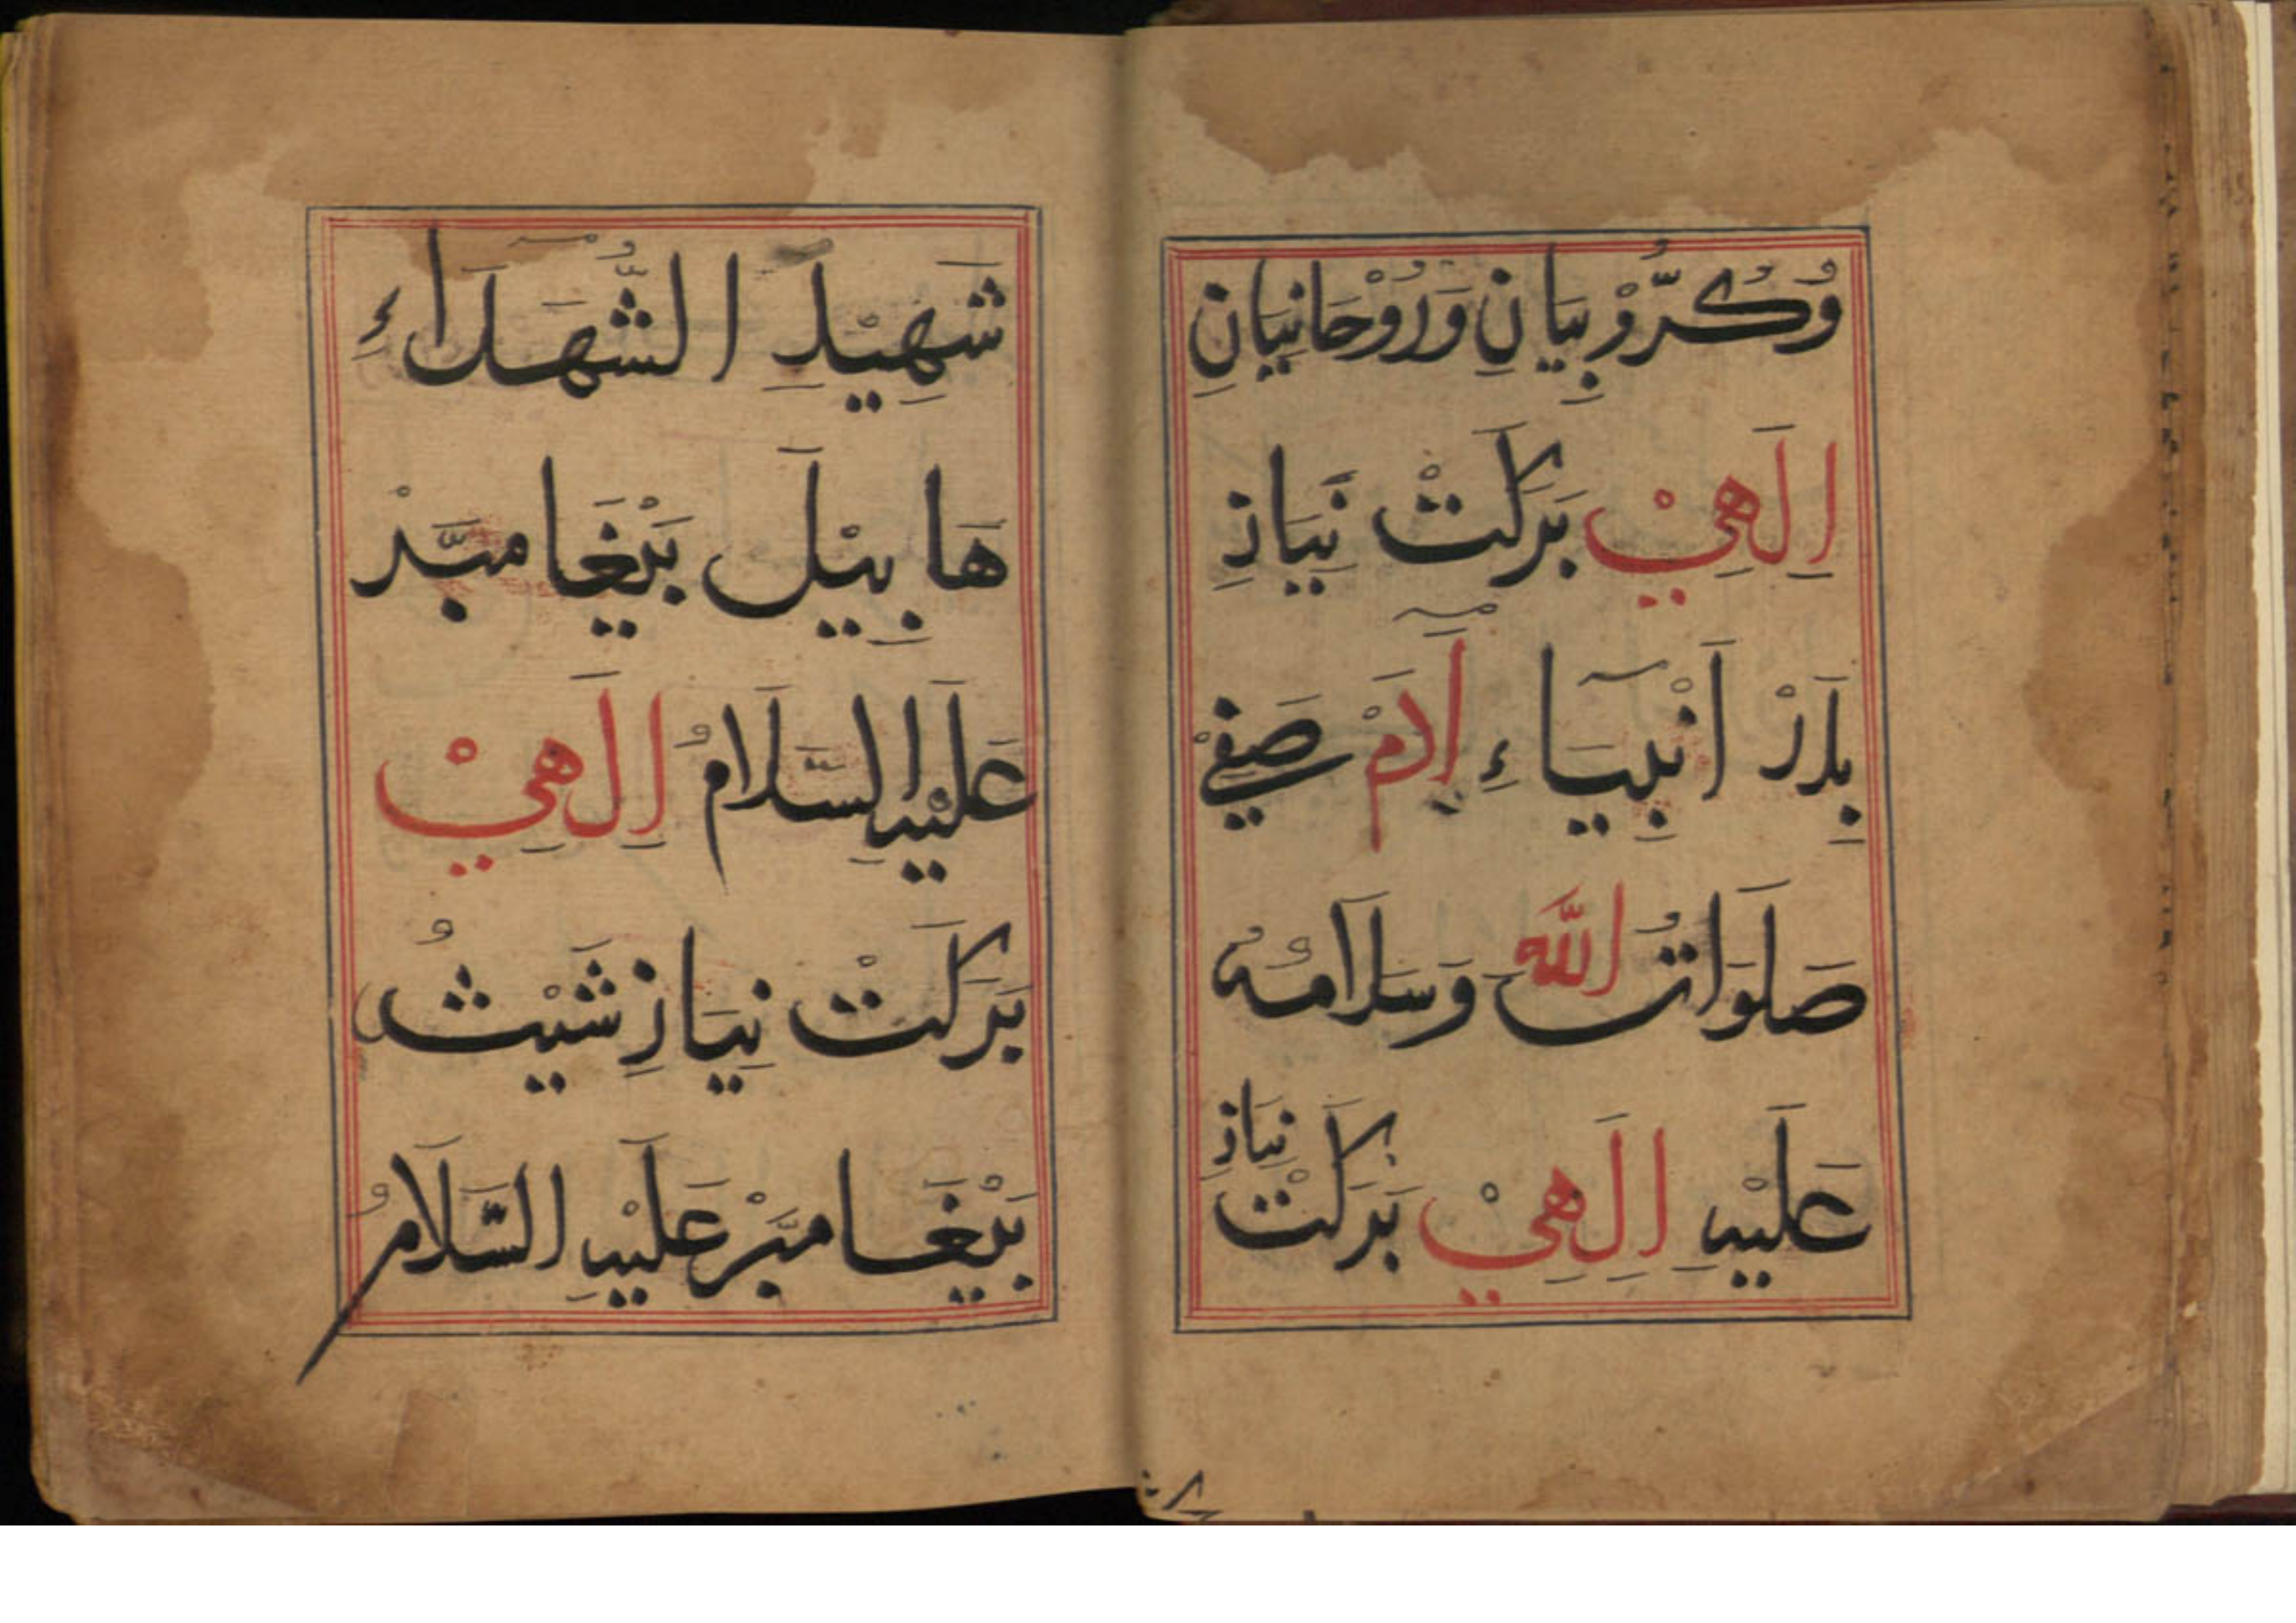 وُكُرُّوْبِيَانِ وَرُوْحَانِيَانِ
اِلَهِيْ بَرَكَتْ نِيَازِ
بِدَرْ اَنْبِيَاءِ آدَمْ صَفِيْ
صَلَوَاتُ اللّٰه وَسَلَامُهُ
عَلَيْهِ اِلَهِيْ بَرَكَتْ نِيَازِ
شَهِيْدِ الشُّهَدَاءِ
هَابِيْلَ بَيْغَامبَرْ
عَلَيْهِ السَّلَامُ اِلَهِيْ
بَرَكَتْ نِيَازِ شَيْثُ
بَيْغَامبَرْ عَلَيْهِ السَّلَامُ